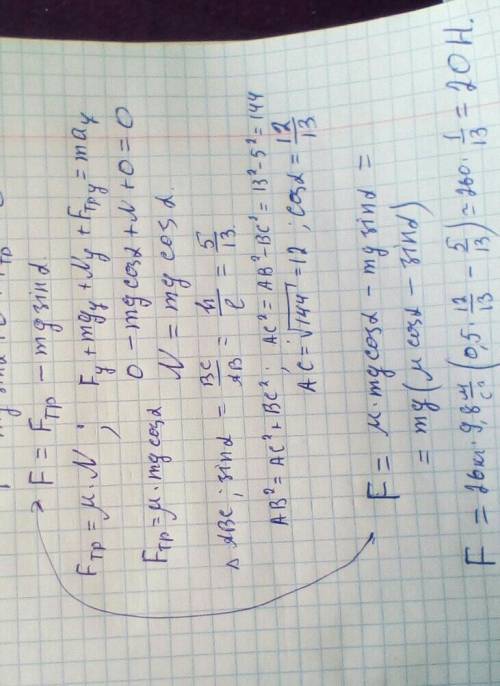 F = Fтр − mg sinα
Fтр = μ·N ; Fy + mgy + Ny + Fтр y = may
0 − mg cosα + N + 0 = 0
Fтр = μ·mg cosα N = mg cosα.
△ ABC; sinα = BC/AB = h/l = 5/13.
AB² = AC² + BC²; AC² = AB² − BC² = 13² − 5² = 144
AC = √144 = 12; cosα = 12/13
F = μ·mg cosα − mg sinα =
= mg(μ cosα − sinα)
F = 26кг·9,8 м/с² (0,5·12/13 − 5/13) = 260·1/13 = 20Н.